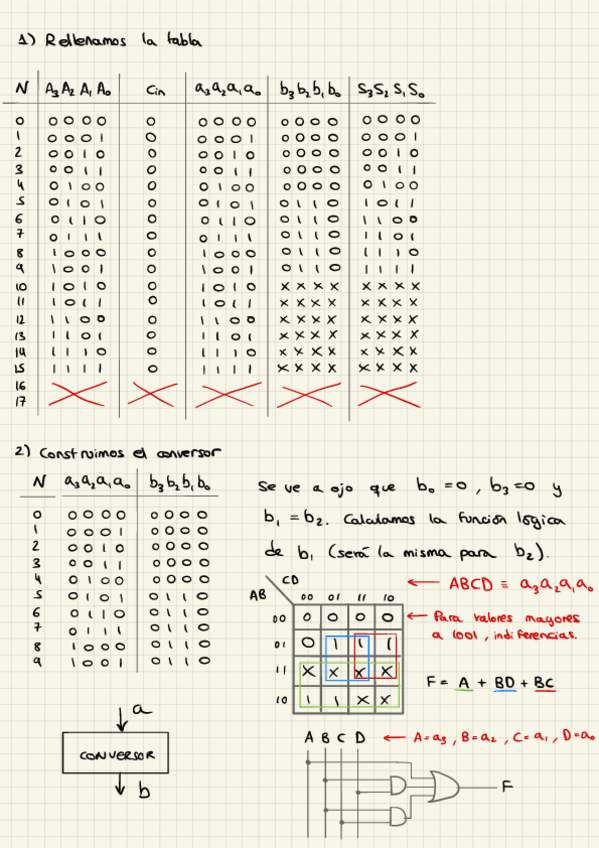 1) Rellenamos la tabla
N A₃ A₂ A₁ A₀ Cin a₃ a₂ a₁ a₀ b₃ b₂ b₁ b₀ S₃ S₂ S₁ S₀
0 0 0 0 0 0 0 0 0 0 0 0 0 0 0 0 0 0
1 0 0 0 1 0 0 0 0 1 0 0 0 0 0 0 0 1
2 0 0 1 0 0 0 0 1 0 0 0 0 0 0 0 1 0
3 0 0 1 1 0 0 0 1 1 0 0 0 0 0 0 1 1
4 0 1 0 0 0 0 1 0 0 0 0 0 0 0 1 0 0
5 0 1 0 1 0 0 1 0 1 0 1 1 0 1 0 1 1
6 0 1 1 0 0 0 1 1 0 0 1 1 0 1 1 0 0
7 0 1 1 1 0 0 1 1 1 0 1 1 0 1 1 0 1
8 1 0 0 0 0 1 0 0 0 0 1 1 0 1 1 1 0
9 1 0 0 1 0 1 0 0 1 0 1 1 0 1 1 1 1
10 1 0 1 0 0 1 0 1 0 x x x x x x x x
11 1 0 1 1 0 1 0 1 1 x x x x x x x x
12 1 1 0 0 0 1 1 0 0 x x x x x x x x
13 1 1 0 1 0 1 1 0 1 x x x x x x x x
14 1 1 1 0 0 1 1 1 0 x x x x x x x x
15 1 1 1 1 0 1 1 1 1 x x x x x x x x
16
17
2) Construimos el conversor
N a₃ a₂ a₁ a₀ b₃ b₂ b₁ b₀
0 0 0 0 0 0 0 0 0
1 0 0 0 1 0 0 0 0
2 0 0 1 0 0 0 0 0
3 0 0 1 1 0 0 0 0
4 0 1 0 0 0 0 0 0
5 0 1 0 1 0 1 1 0
6 0 1 1 0 0 1 1 0
7 0 1 1 1 0 1 1 0
8 1 0 0 0 0 1 1 0
9 1 0 0 1 0 1 1 0
a
CONVERSOR
b
Se ve a ojo que b₀ = 0, b₃ = 0 y
b₁ = b₂. Calculamos la función lógica
de b₁ (será la misma para b₂).
CD
AB 00 01 11 10
00 0 0 0 0
01 0 1 1 1
11 x x x x
10 1 1 x x
← ABCD ≡ a₃ a₂ a₁ a₀
← Para valores mayores
a 1001, indiferencias.
F = A + BD + BC
A B C D ← A=a₃, B=a₂, C=a₁, D=a₀
F